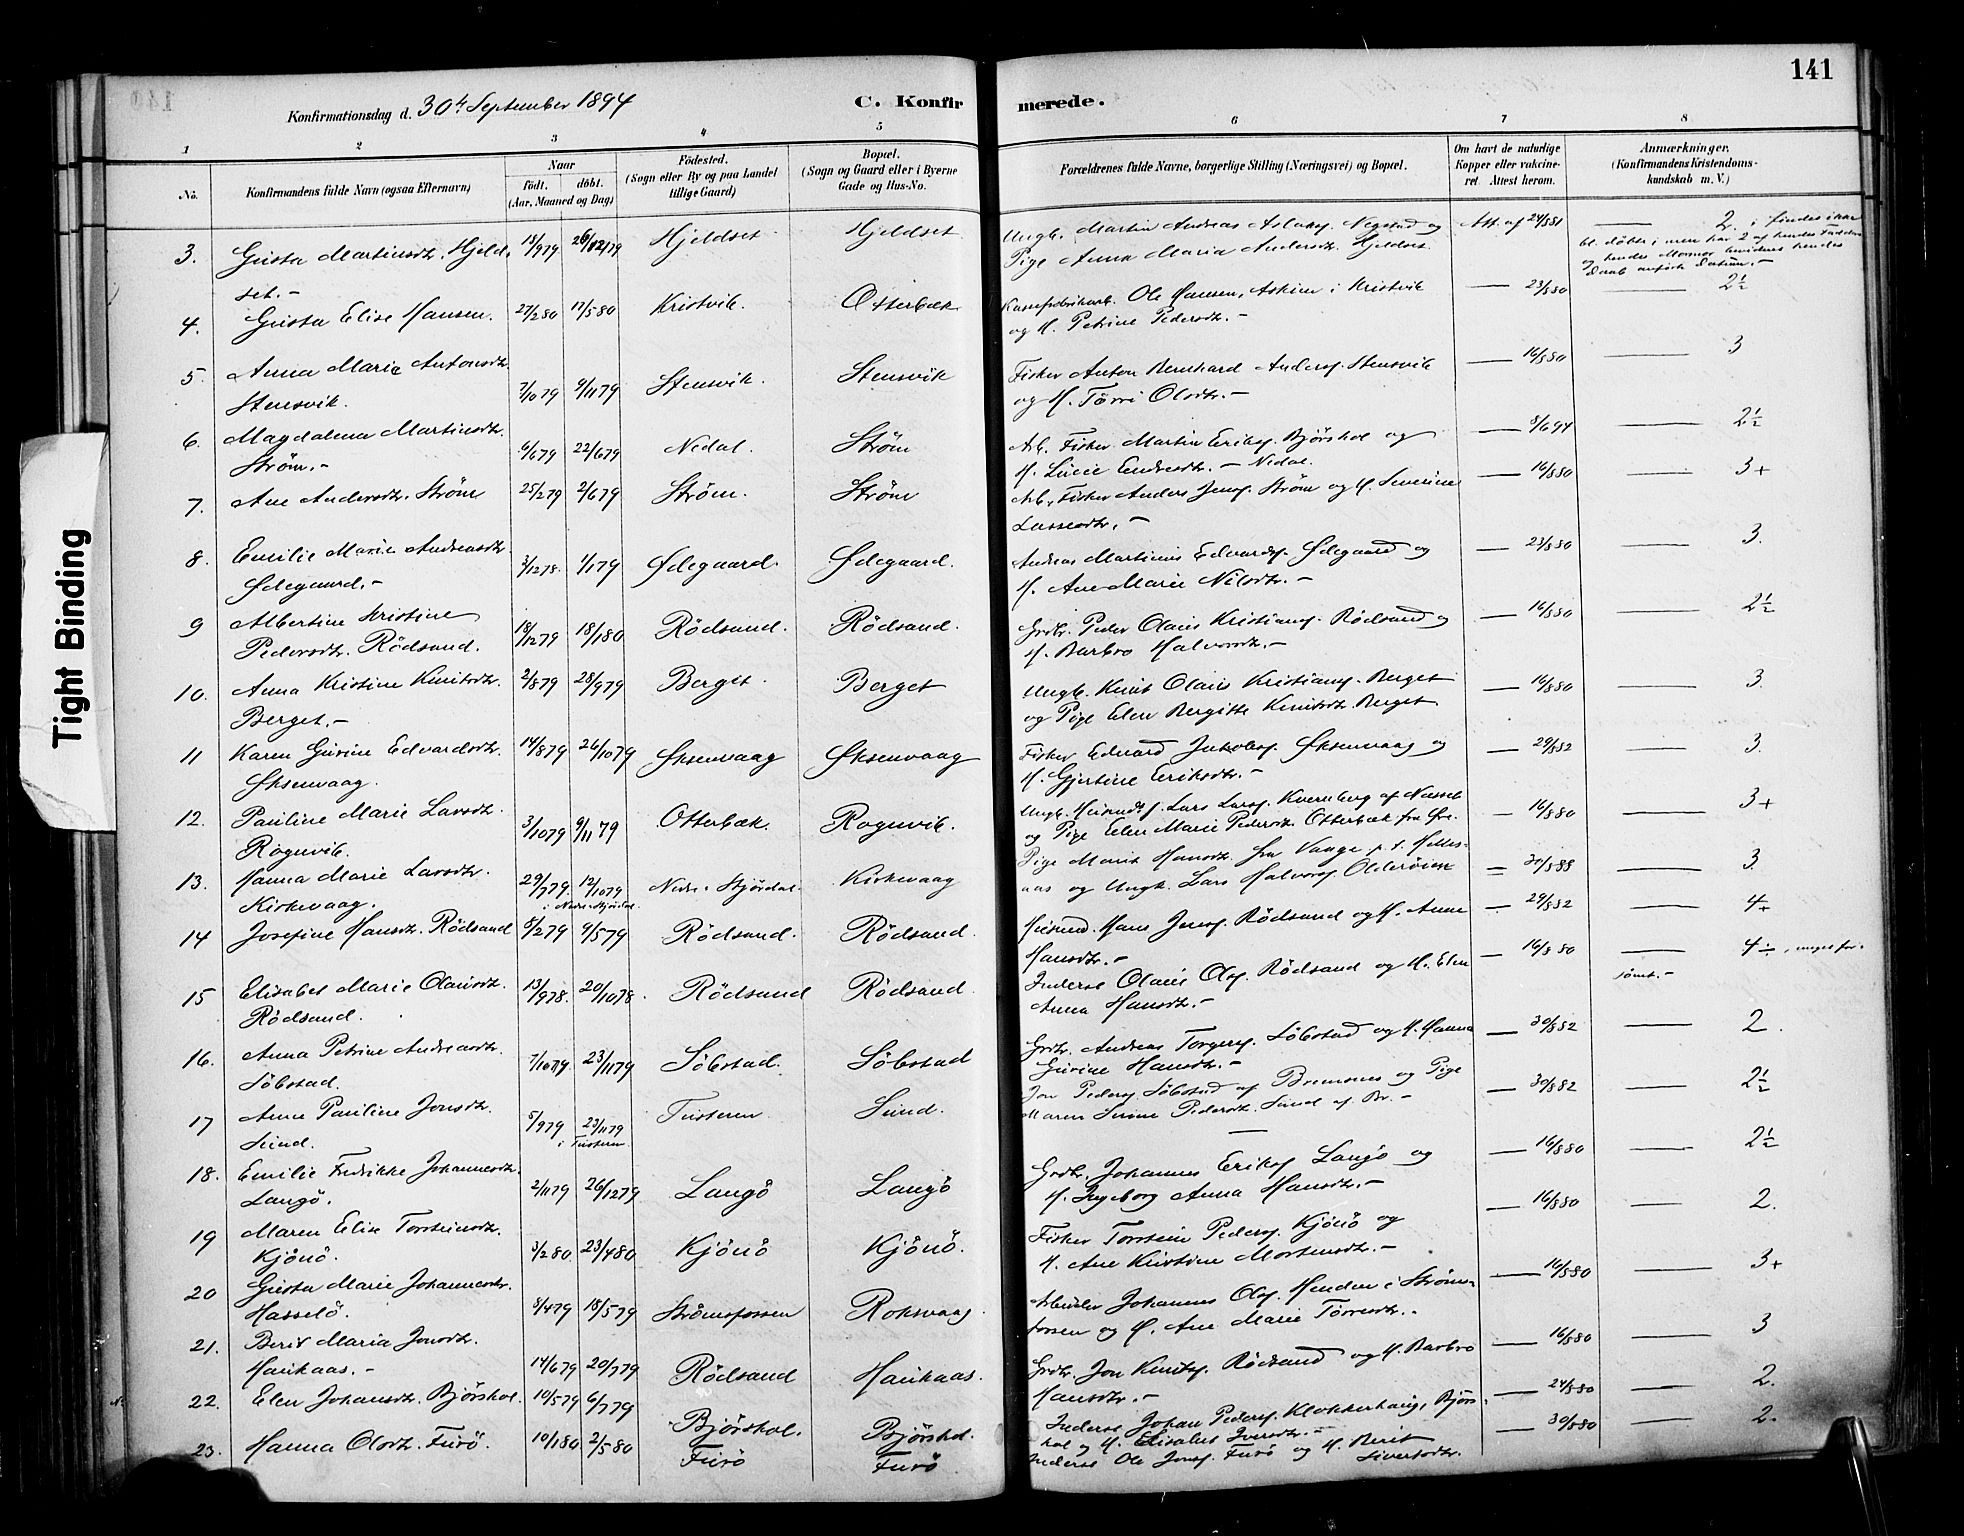 141
Konfirmationsdag d. 30te September 1894
C. Konfirmerede.
1 2 3 4 5 6 7 8
No. Konfirmandens fulde Navn (ogsaa Efternavn) Naar födt. döbt. (Aar, Maaned og Dag) Födested. (Sogn eller By og paa Landet tillige Gaard) Bopæl. (Sogn og Gaard eller i Byerne Gade og Hus-No. Forældrenes fulde Navne, borgerlige Stilling (Næringsvei) og Bopæl. Om havt de naturlige Kopper eller vakcineret. Attest herom. Anmærkninger. (Konfirmandens Kristendomskundskab m. V.)
3. Gusta Martinsdtr. Hjeldset.- 18/979 26/1279 Hjeldset Hjeldset Ungk. Martin Andreas Aslaks. Negstad og Pige Anna Maria Andersdtr. Hjeldset. Att. af 24/881 — 2.
4. Gusta Elise Hansen. 27/280 17/580 Kristvik. Otterbæk Ole Hansen, Askim i Kristvik og H. Petrine Pedersdtr.- — 23/880 — 2½
5. Anna Marie Antonsdtr. Stensvik. 7/1079 9/1179 Stensvik. Stensvik Fisker Anton Bernhard Anders. Stensvik og H. Törri Olsdtr.- — 16/880 — 3
6. Magdalena Martinsdtr. Ström.- 6/679 22/679 Nedal. Ström Arb. Fisker Martin Eriks. Bjørshol og H. Lucie Endresdtr.- Nedal. — 8/694 — 2½
7. Ane Andersdtr. Ström 25/279 2/679 Ström. Ström Arb., Fisker Anders Jens. Ström og H. Severine Lassesdtr.- — 16/880 — 3+
8. Emilie Marie Andreasdtr. Ødegaard.- 3/1278. 1/179 Ødegaard. Ødegaard. Andreas Martinus Edvards. Ødegaard og H. Ane Marie Nilsdtr.- — 23/880 — 3.
9 Albertine Kristine Pedersdtr. Rödsand. 18/1279 18/180 Rödsand. Rödsand. Grdbr. Peder Olaus Kristians. Rödsand og H. Barbro Halvorsdtr.- — 16/880 — 2½
10. Anna Kristine Knutsdtr. Berget.- 2/879 28/979 Berget. Berget Ungk. Knut Olaus Kristians. Berget og Pige Elen Bergitte Knutsdtr. Berget — 16/880 — 3.
11 Karen Gurine Edvardsdtr. Øksenvaag. 14/879 26/1079 Øksenvaag Øksenvaag Fisker Edvard Jakobs. Øksenvaag og H. Gjertine Eriksdtr.- — 29/882 — 3.
12. Pauline Marie Larsdtr. Rognvik. 3/1079 9/1179 Otterbæk. Rognvik. Ungk. Lars Lars. Kvernberg af Nesset og Pige Elen Marie Pedersdtr. Otterbæk — 16/880 — 3+
13. Hanna Marie Larsdtr. Kirkevaag. 29/779 12/1079 i Nedre-Stjördal. Nedre-Stjördal. Kirkevaag Pige Marit Hansdtr. fra Vange p.t. Helles- aas og Ungk. Lars Halvors. Olderöien = 30/888 — 3.
14 Josefine Hansdtr. Rödsand 8/279 9/579 Rödsand. Rödsand. Husmd. Hans Jens. Rödsand og H. Anne Hansdtr.- — 29/882 — 4+
15 Elisabet Marie Olausdtr. Rödsand. 13/978. 20/1078. Rödsand Rödsand. Inderst Olaus Ols. Rödsand og H. Elen Anna Hansdtr.- — 16/880 — 4÷, meget forsömt.-
16. Anna Petrine Andreasdtr. Söbstad. 7/1079 23/1179 Söbstad. Söbstad Grdbr. Andreas Torgers. Söbstad og H. Hanna Gurine Hansdtr.- — 30/882 — 2.
17 Anne Pauline Jonsdtr. Sund. 5/979 23/1179 i Tusteren. Tusteren Sund. Jon Peders. Söbstad af Bremsnes og Pige Maren Serine Pedersdtr. Sund af Br.- — 30/882 — 2½
18. Emilie Fredrikke Johannesdtr. Langö. 2/1179 26/1279 Langö Langö Grdbr. Johannes Eriks. Langö og H. Ingeborg Anna Hansdtr.- — 16/880 — 2½
19 Maren Elise Torsteinsdtr. Kjönö. 3/280 23/480 Kjönö Kjönö. Fisker Torstein Peders. Kjönö og H. Ane Kristine Mortensdtr.- — 16/880 — 2.
20 Gusta Marie Johannesdtr. Hasselö. 8/479 18/579 Strömsfossen Roksvaag. Arbeider Johannes Ols. Henden i Ströms- fossen og H. Ane Marie Törresdtr.. — 16/880 — 3+
21. Berit Maria Jonsdtr. Haukaas.- 14/679 20/779 Rödsand Haukaas. Grdbr. Jon Knuts. Rödsand og H. Barbro Hansdtr.- — 16/880 — 3
22. Elen Johansdtr. Bjørshol. 10/579 6/779 Bjørshol. Bjørshol. Inderst Johan Peders. Klokkerhaug, Bjørs- hol og H. Elisabet Iversdtr.- — 24/880 — 2.
23. Hanna Olsdtr. Furö. 10/180 2/580 Furö Furö Inderst Ole Jons. Furö og H. Berit Sivertsdtr. — 30/880 — 2.
Tight Binding